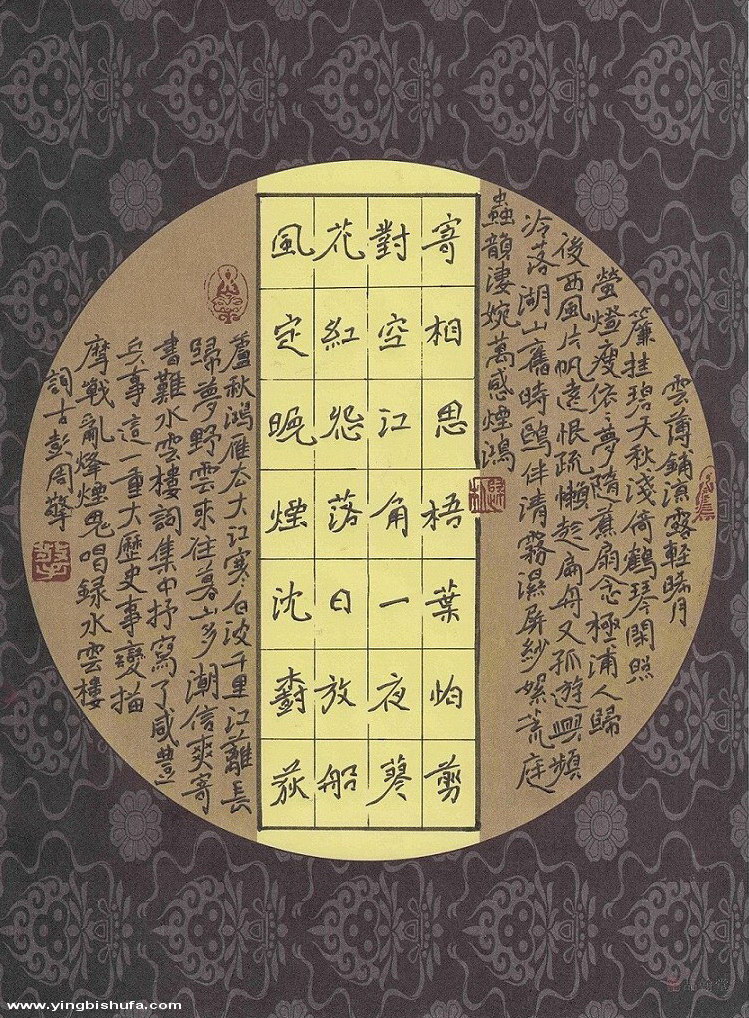 雲薄鋪涼露輕曉月
簾挂碧天秋淺倚鶴琴閑照
螢燈瘦依〻夢隨蕉扇念極浦人歸
後西風片帆遠恨疏懶趁扁舟又孤遊興頻
冷落湖山舊時鷗伴清霧濕屏紗螺荒庭
蟲韻淒婉萬感煙鴻
寄相思梧葉怕剪
對空江角一夜蓼
花紅怨落日放船
風定晚煙沈對荻
蘆秋鴻雁大江寒白波千里江蘺長
歸夢野雲來往暮山多潮信爽寄
書難水雲樓詞集中抒寫了咸豐
兵事這一重大歷史事變描
摩戰亂烽煙鬼唱録水雲樓
詞古彭周擎
www.yingbishufa.com